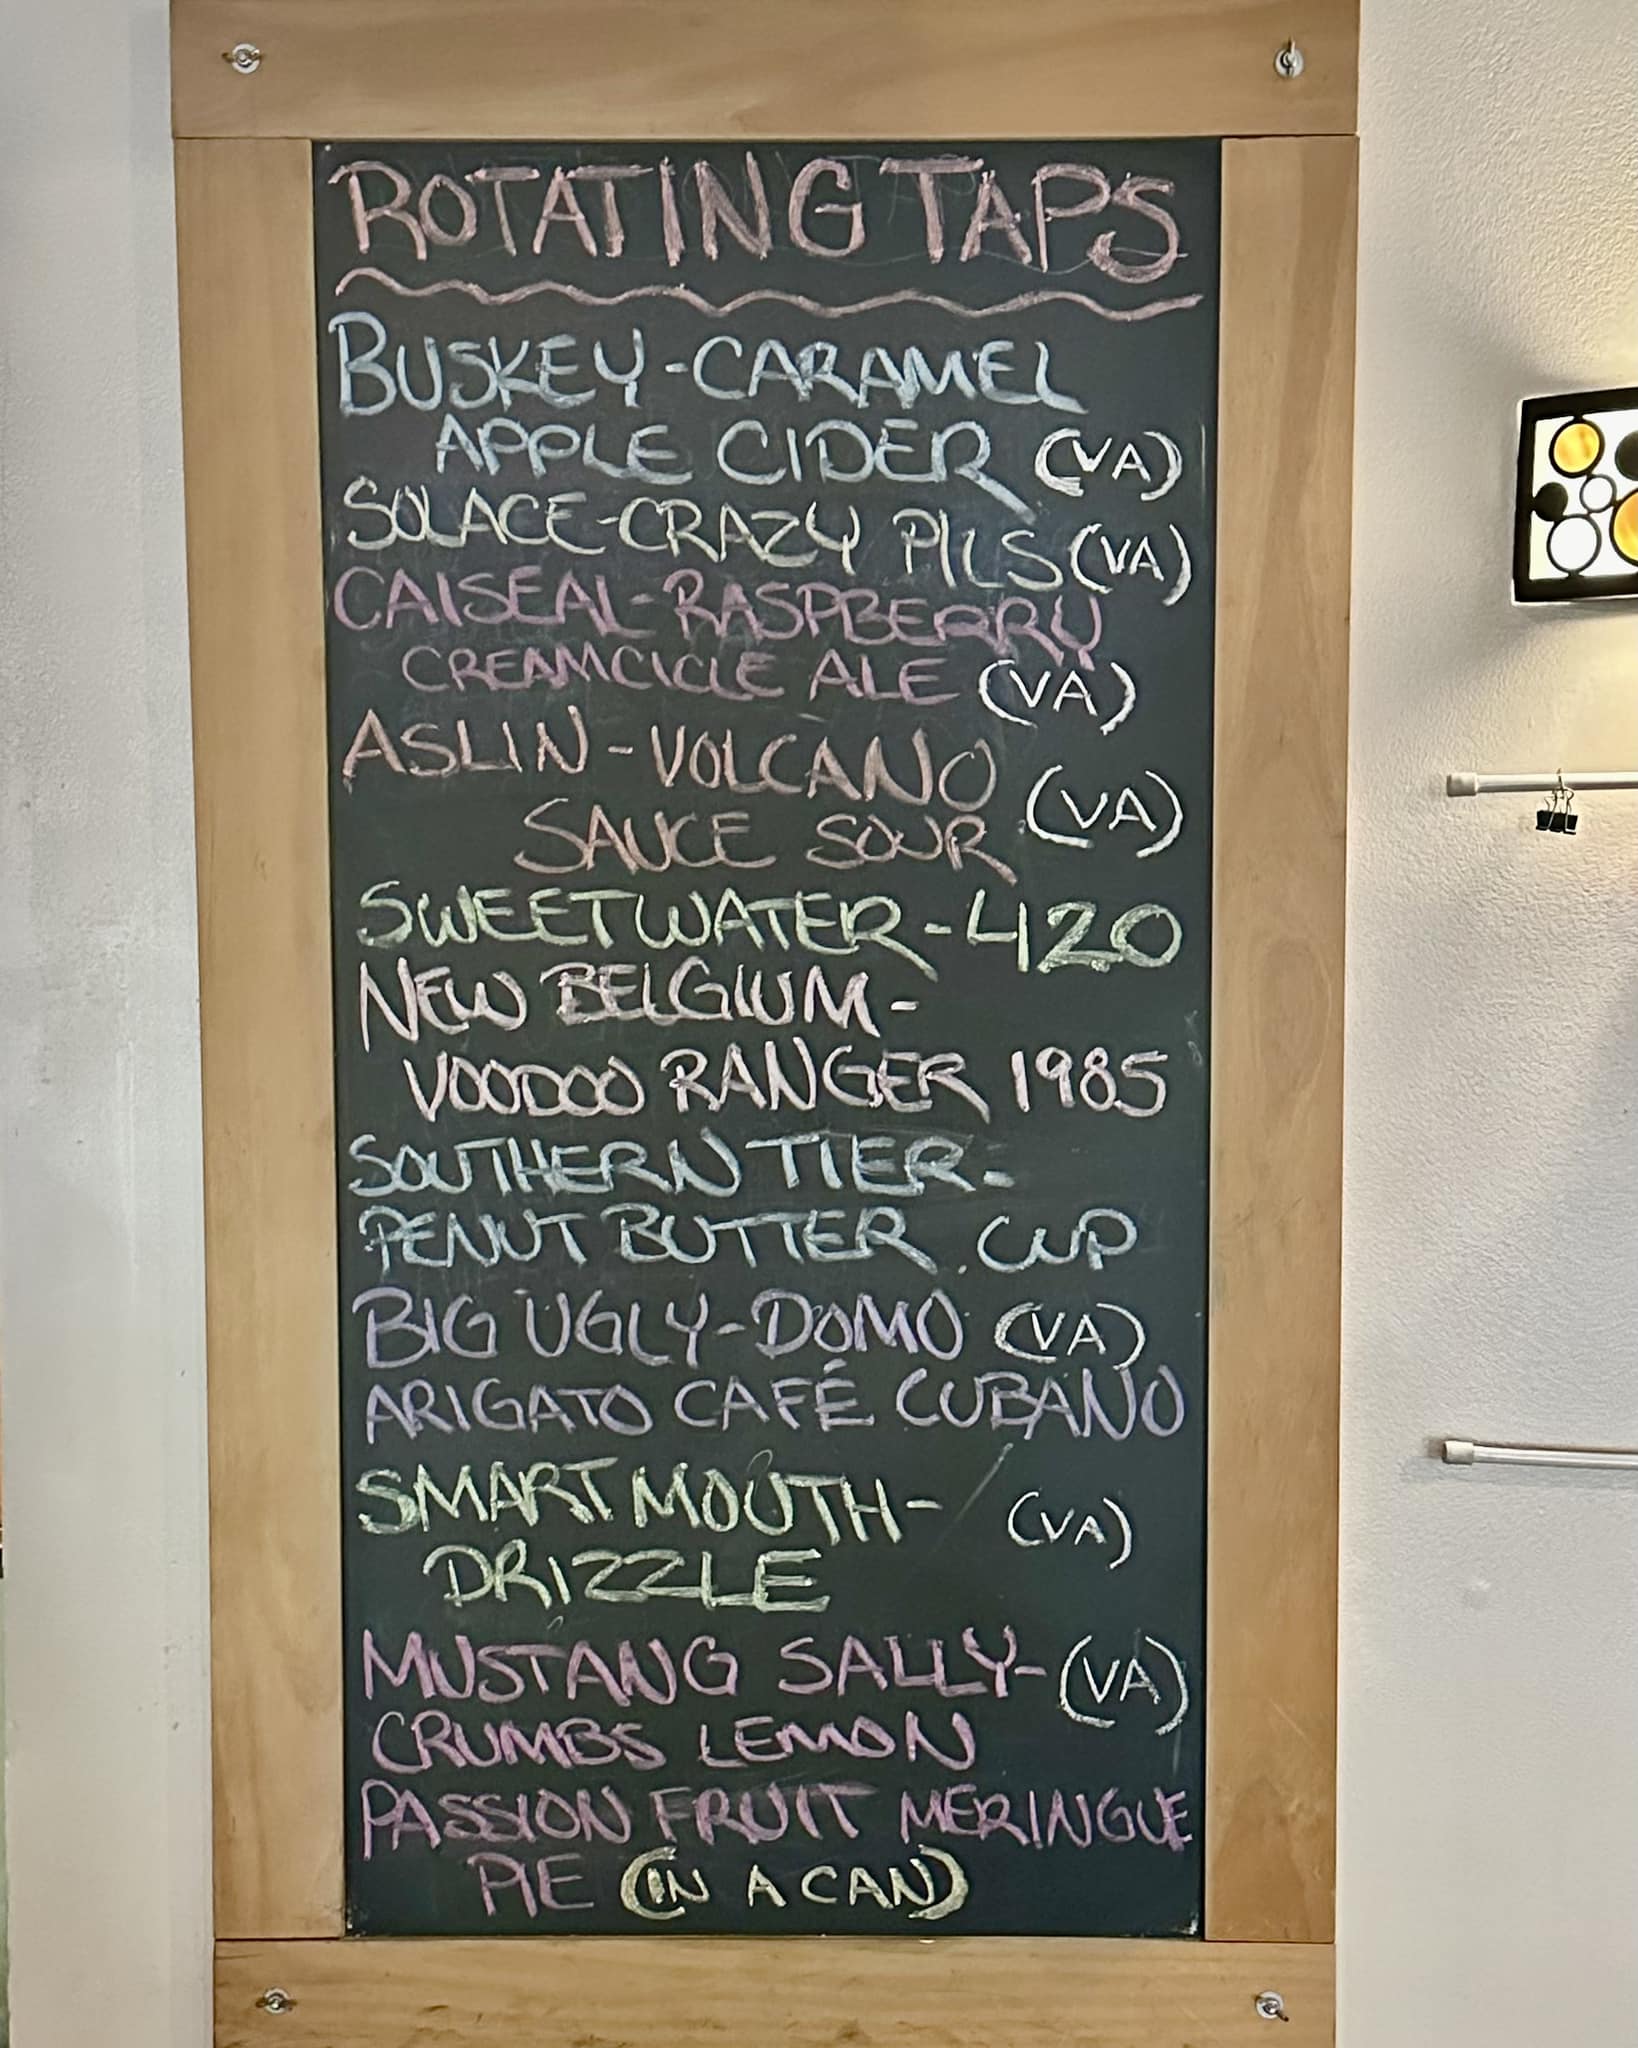 ROTATING TAPS
BUSKEY-CARAMEL
APPLE CIDER (VA)
SOLACE-CRAZY PILS (VA)
CAISEAL-RASPBERRY
CREAMCICLE ALE (VA)
ASLIN-VOLCANO
SAUCE SOUR (VA)
SWEETWATER-420
NEW BELGIUM-
VOODOO RANGER 1985
SOUTHERN TIER-
PENUT BUTTER CUP
BIG UGLY-DOMO (VA)
ARIGATO CAFÉ CUBANO
SMARTMOUTH- (VA)
DRIZZLE
MUSTANG SALLY- (VA)
CRUMBS LEMON
PASSION FRUIT MERINGUE
PIE (IN A CAN)